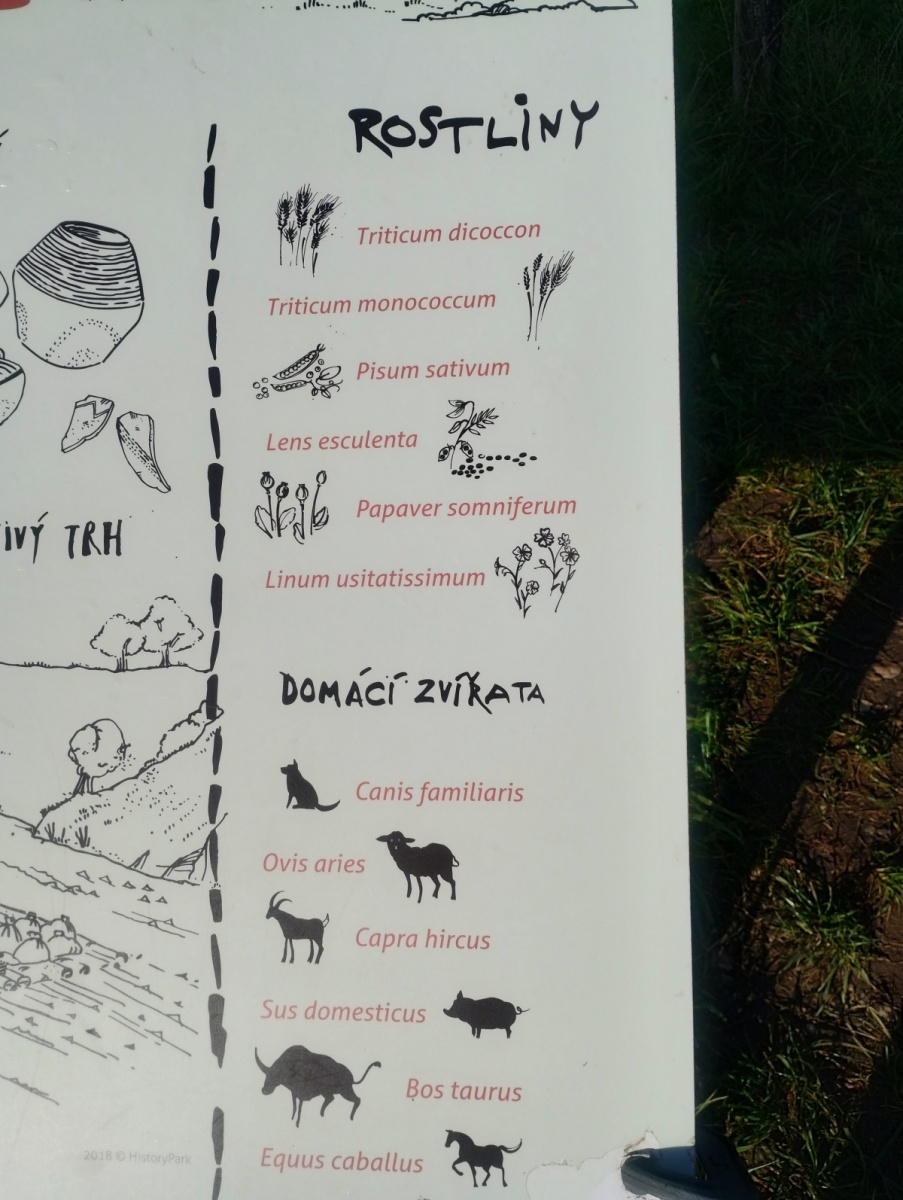 ROSTLINY
Triticum dicoccon
Triticum monococcum
Pisum sativum
Lens esculenta
Papaver somniferum
Linum usitatissimum
DOMÁCÍ ZVÍŘATA
Canis familiaris
Ovis aries
Capra hircus
Sus domesticus
Bos taurus
Equus caballus
TRH
2018 © HistoryPark